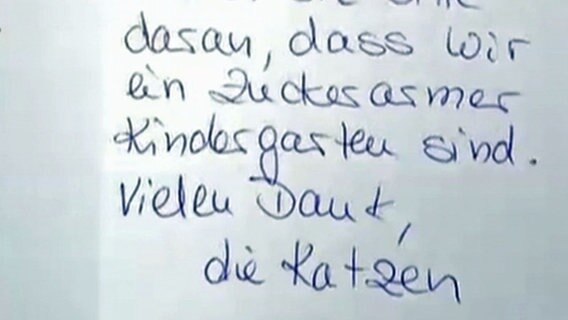 daran, dass wir
ein zuckerarmer
Kindergarten sind.
Vielen Dank,
die Katzen